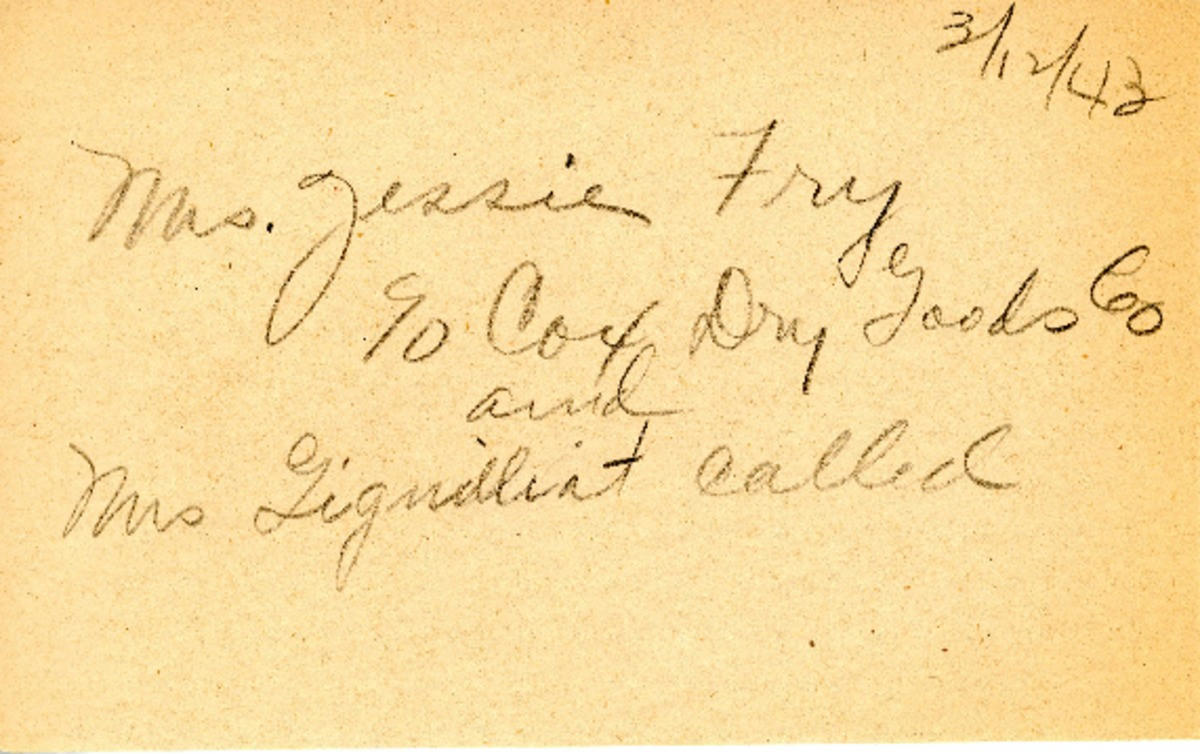 3/12/43
Mrs. Jessie Fry
c/o Cox Dry Goods Co
and
Mrs Gignilliat called